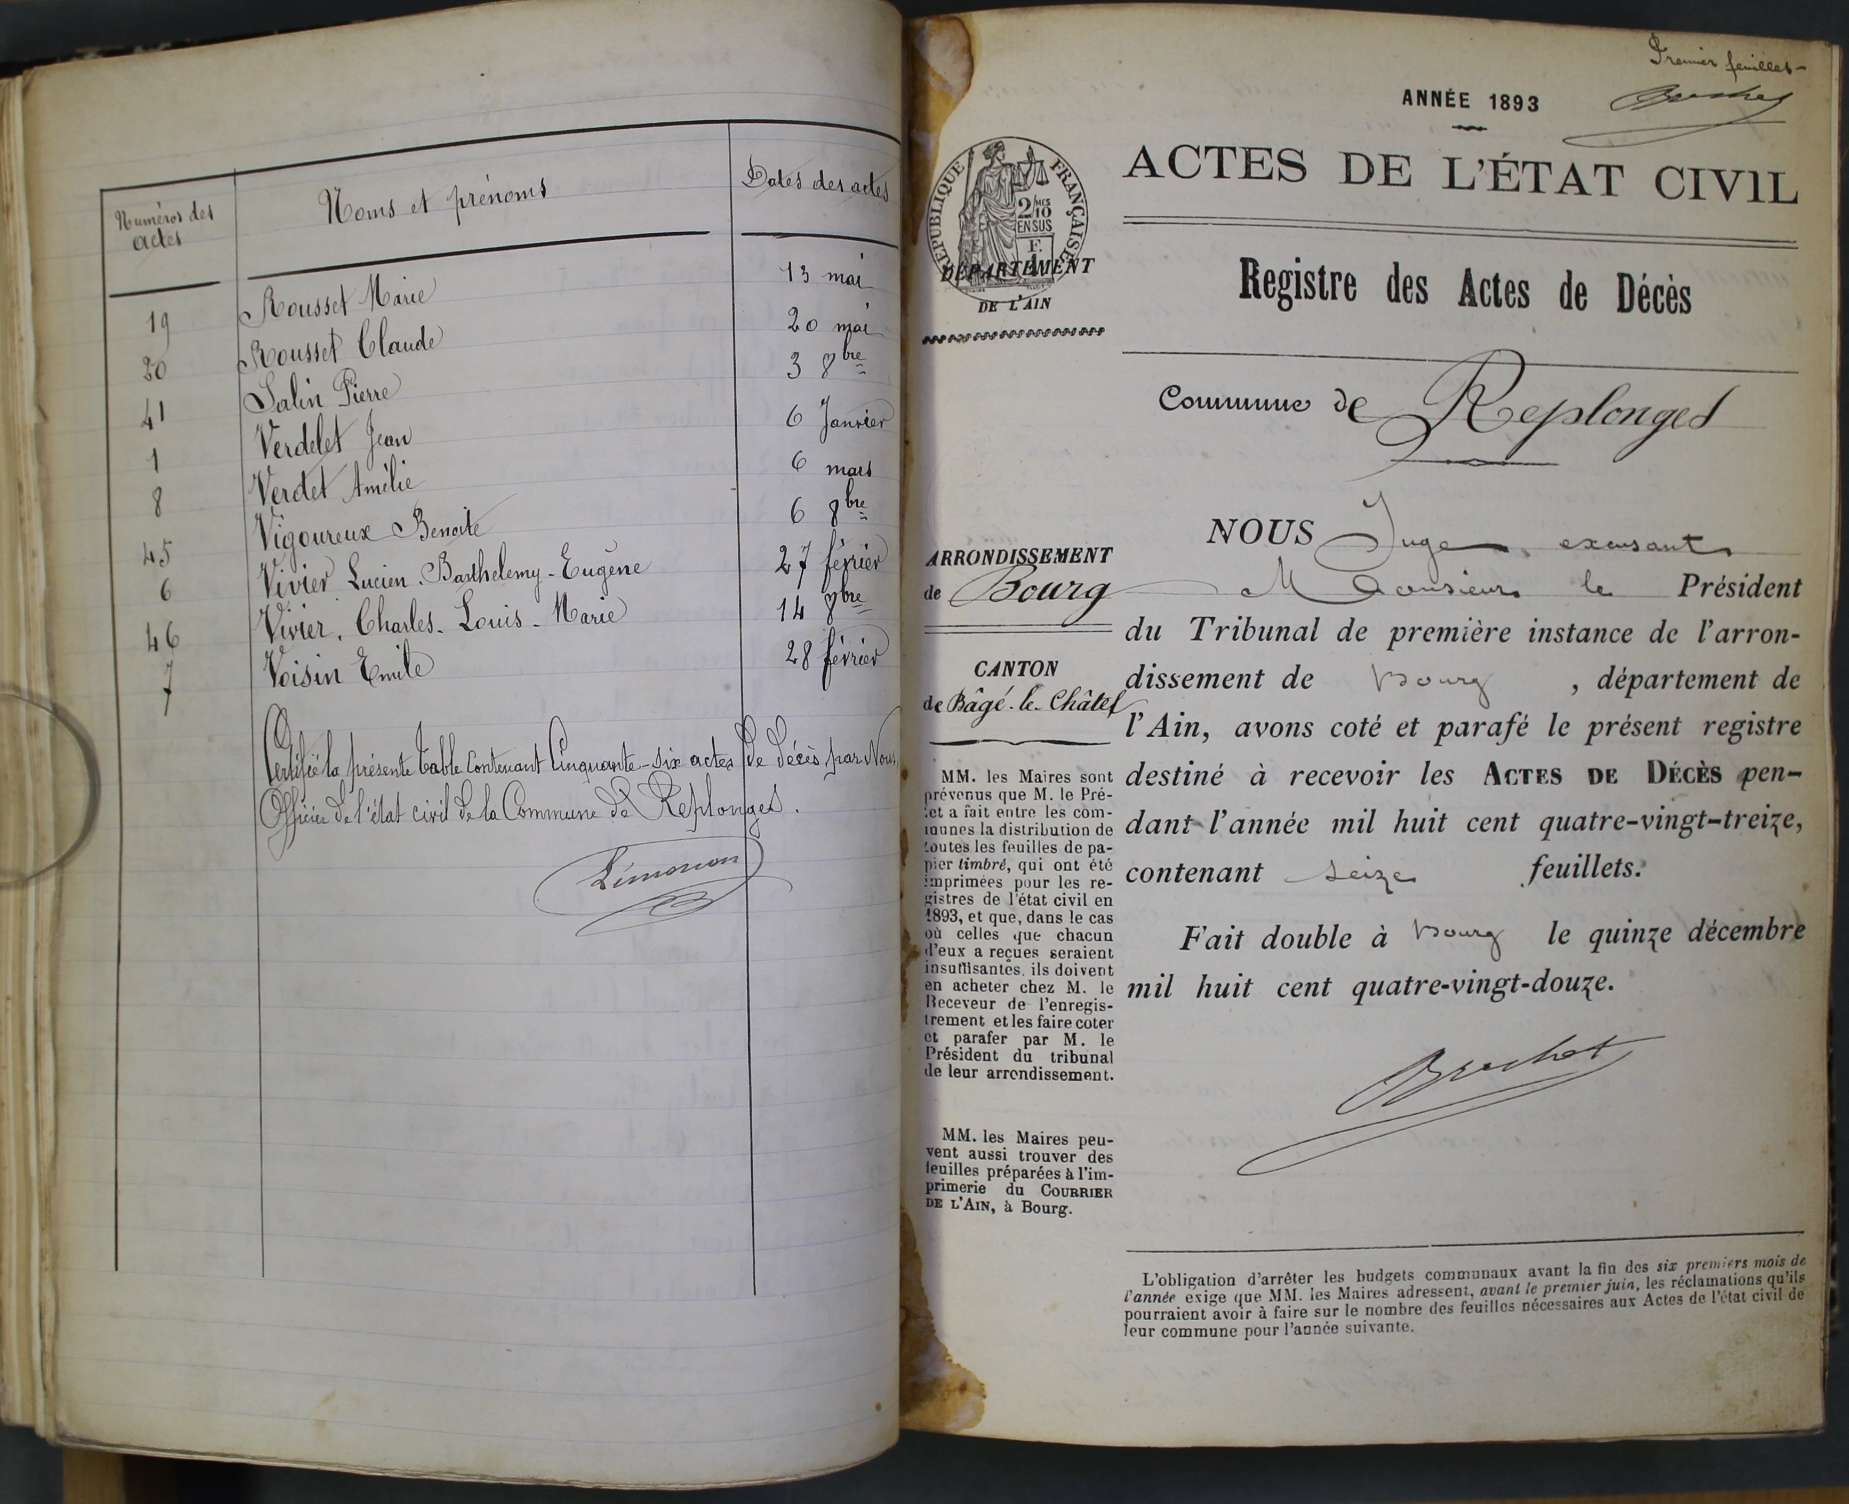 Numéros des
actes
Noms et prénoms
Dates des actes
19 Rousset Marie 13 mai
20 Rousset Claude 20 mai
41 Salin Pierre 3 8bre
1 Verdelet Jean 6 Janvier
8 Verdet Amélie 6 mars
45 Vigoureux Benoite 6 8bre
6 Vivier Lucien Barthelemy-Eugène 27 février
46 Vivier. Charles. Louis-Marie 14 8bre
7 Voisin Emile 28 février
Certifié la présente table contenant Cinquante-six actes de décès par Nous
Officier de l'état civil de la Commune de Replonges.
Premier feuillet
ANNÉE 1893
ACTES DE L'ÉTAT CIVIL
RÉPUBLIQUE FRANÇAISE
2/10MES
EN SUS
DÉPARTEMENT
DE L'AIN
Registre des Actes de Décès
Commune de Replonges
ARRONDISSEMENT
de Bourg
CANTON
de Bâgé-le-Châtel
MM. les Maires sont
prévenus que M. le Pré-
fet a fait entre les com-
munes la distribution de
toutes les feuilles de pa-
pier timbré, qui ont été
imprimées pour les re-
gistres de l'état civil en
1893, et que, dans le cas
où celles que chacun
d'eux a reçues seraient
insuffisantes, ils doivent
en acheter chez M. le
Receveur de l'enregis-
trement et les faire coter
et parafer par M. le
Président du tribunal
de leur arrondissement.
MM. les Maires peu-
vent aussi trouver des
feuilles préparées à l'im-
primerie du COURRIER
DE L'AIN, à Bourg.
NOUS Juge excusant
Monsieur le Président
du Tribunal de première instance de l'arron-
dissement de Bourg , département de
l'Ain, avons coté et parafé le présent registre
destiné à recevoir les ACTES DE DÉCÈS pen-
dant l'année mil huit cent quatre-vingt-treize,
contenant seize feuillets.
Fait double à Bourg le quinze décembre
mil huit cent quatre-vingt-douze.
L'obligation d'arrêter les budgets communaux avant la fin des six premiers mois de
l'année exige que MM. les Maires adressent, avant le premier juin, les réclamations qu'ils
pourraient avoir à faire sur le nombre des feuilles nécessaires aux Actes de l'état civil de
leur commune pour l'année suivante.